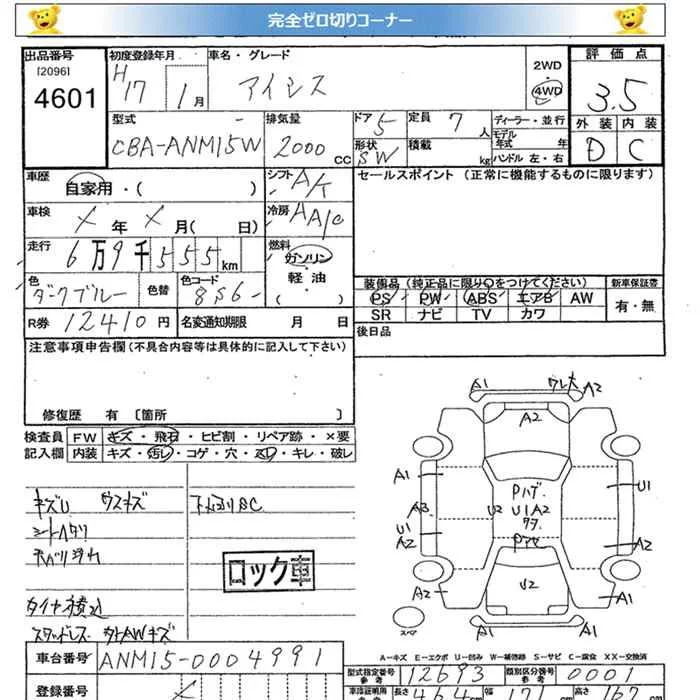 完全ゼロ切りコーナー
出品番号 初度登録年月 車名・グレード 2WD 評価点
[2096] H17 1月 アイシス 4WD 3.5
4601
型式 排気量 ドア 5 定員 7人 ディーラー・並行 外装 内装
CBA-ANM15W 2000cc 形状 SW 積載 kg モデル年式 年 D C
ハンドル 左・右
車歴 自家用・( ) シフト A/T セールスポイント (正常に機能するものに限ります)
車検 X年 X月( 日) 冷房 AA/C
走行 6万9千555km 燃料 ガソリン
軽油
( )
色 ダークブルー 色替 色コード 8S6- 装備品 (純正品に限り○をつけてください) 新車保証書
PS PW ABS エアB AW 有・無
SR ナビ TV カワ
R券 12410円 名変通知期限 月 日 後日品
注意事項申告欄(不具合内容等は具体的に記入して下さい)
修復歴 有 [箇所 ]
検査員 FW キズ・飛石・ヒビ割・リペア跡・×要
記入欄 内装 キズ・汚レ・コゲ・穴・スレ・キレ・破レ
A1 ワレ大 A2
A2
A1 U1
Pハゲ
A3 U2 U1A2
U1
A2 A2
U2
A2 A1
A1
スペア
ウスキズ
シートヘタリ
ロック車
タイヤ積込
スタッドレス カトAWキズ
A-キズ E-エクボ U-凹み W-補修跡 S-サビ C-腐食 XX-交換済
車台番号 ANM15-0004991 型式指定番号 参考 12693 類別区分番号 参考 0001
登録番号 車庫証明用 長さ 464cm 幅 171cm 高さ 167cm